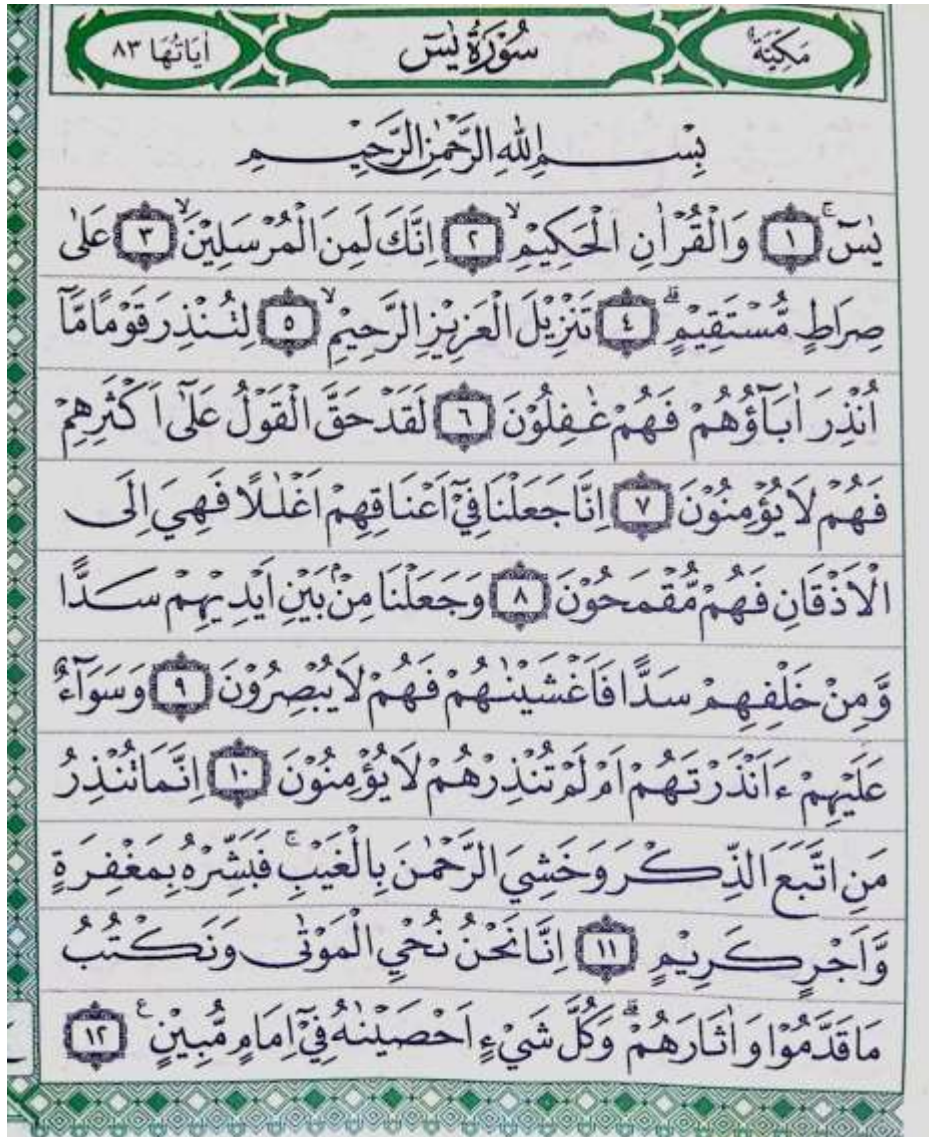 مَكِّيَّةٌ سُوْرَةُ يٰسٓ اٰيَاتُهَا ٨٣
بِسْمِ اللّٰهِ الرَّحْمٰنِ الرَّحِيْمِ
يٰسٓ ۚ ١ وَالْقُرْاٰنِ الْحَكِيْمِ ۙ ٢ اِنَّكَ لَمِنَ الْمُرْسَلِيْنَ ۙ ٣ عَلٰى
صِرَاطٍ مُّسْتَقِيْمٍ ۗ ٤ تَنْزِيْلَ الْعَزِيْزِ الرَّحِيْمِ ۙ ٥ لِتُنْذِرَ قَوْمًا مَّآ
اُنْذِرَ اٰبَاۤؤُهُمْ فَهُمْ غٰفِلُوْنَ ٦ لَقَدْ حَقَّ الْقَوْلُ عَلٰٓى اَكْثَرِهِمْ
فَهُمْ لَا يُؤْمِنُوْنَ ٧ اِنَّا جَعَلْنَا فِيْٓ اَعْنَاقِهِمْ اَغْلٰلًا فَهِيَ اِلَى
الْاَذْقَانِ فَهُمْ مُّقْمَحُوْنَ ٨ وَجَعَلْنَا مِنْۢ بَيْنِ اَيْدِيْهِمْ سَدًّا
وَّمِنْ خَلْفِهِمْ سَدًّا فَاَغْشَيْنٰهُمْ فَهُمْ لَا يُبْصِرُوْنَ ٩ وَسَوَاۤءٌ
عَلَيْهِمْ ءَاَنْذَرْتَهُمْ اَمْ لَمْ تُنْذِرْهُمْ لَا يُؤْمِنُوْنَ ١٠ اِنَّمَا تُنْذِرُ
مَنِ اتَّبَعَ الذِّكْرَ وَخَشِيَ الرَّحْمٰنَ بِالْغَيْبِ ۚ فَبَشِّرْهُ بِمَغْفِرَةٍ
وَّاَجْرٍ كَرِيْمٍ ١١ اِنَّا نَحْنُ نُحْيِ الْمَوْتٰى وَنَكْتُبُ
مَا قَدَّمُوْا وَاٰثَارَهُمْ ۗ وَكُلَّ شَيْءٍ اَحْصَيْنٰهُ فِيْٓ اِمَامٍ مُّبِيْنٍ ࣖ ١٢